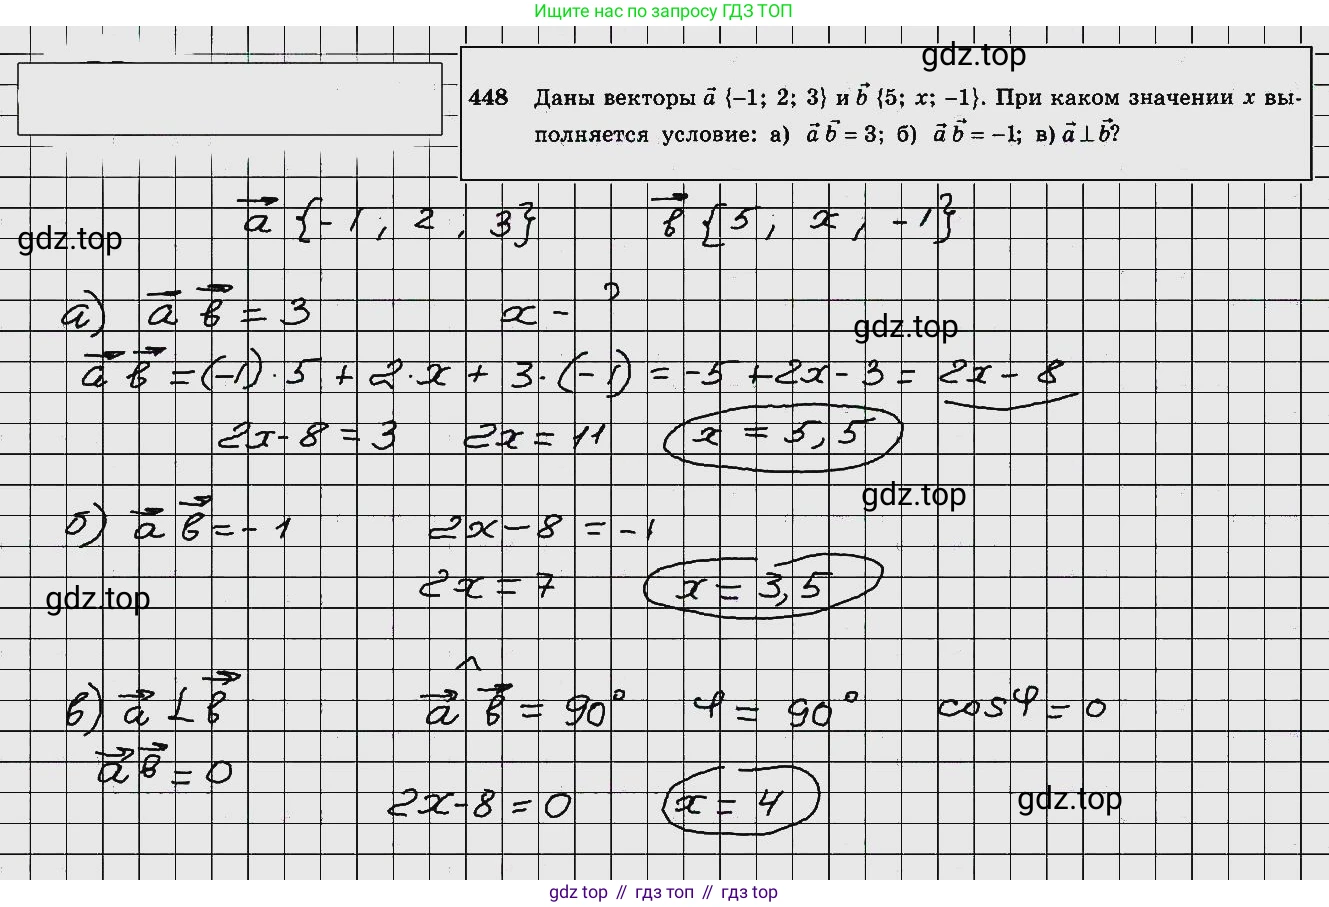 Ищите нас по запросу ГДЗ ТОП
gdz.top
448 Даны векторы a⃗ {–1; 2; 3} и b⃗ {5; x; –1}. При каком значении x вы-
полняется условие: а) a⃗ b⃗ = 3; б) a⃗ b⃗ = –1; в) a⃗ ⊥ b⃗?
a⃗ {-1; 2; 3} b⃗ {5; x; -1}
gdz.top
а) a⃗ b⃗ = 3 x - ?
gdz.top
a⃗ b⃗ = (-1)·5 + 2·x + 3·(-1) = -5 + 2x - 3 = 2x - 8
2x - 8 = 3 2x = 11 x = 5,5
gdz.top
б) a⃗ b⃗ = -1 2x - 8 = -1
2x = 7 x = 3,5
gdz.top
в) a⃗ ⊥ b⃗ a⃗ ^ b⃗ = 90° φ = 90° cos φ = 0
a⃗ b⃗ = 0
2x - 8 = 0 x = 4
gdz.top
gdz top // гдз топ // gdz top